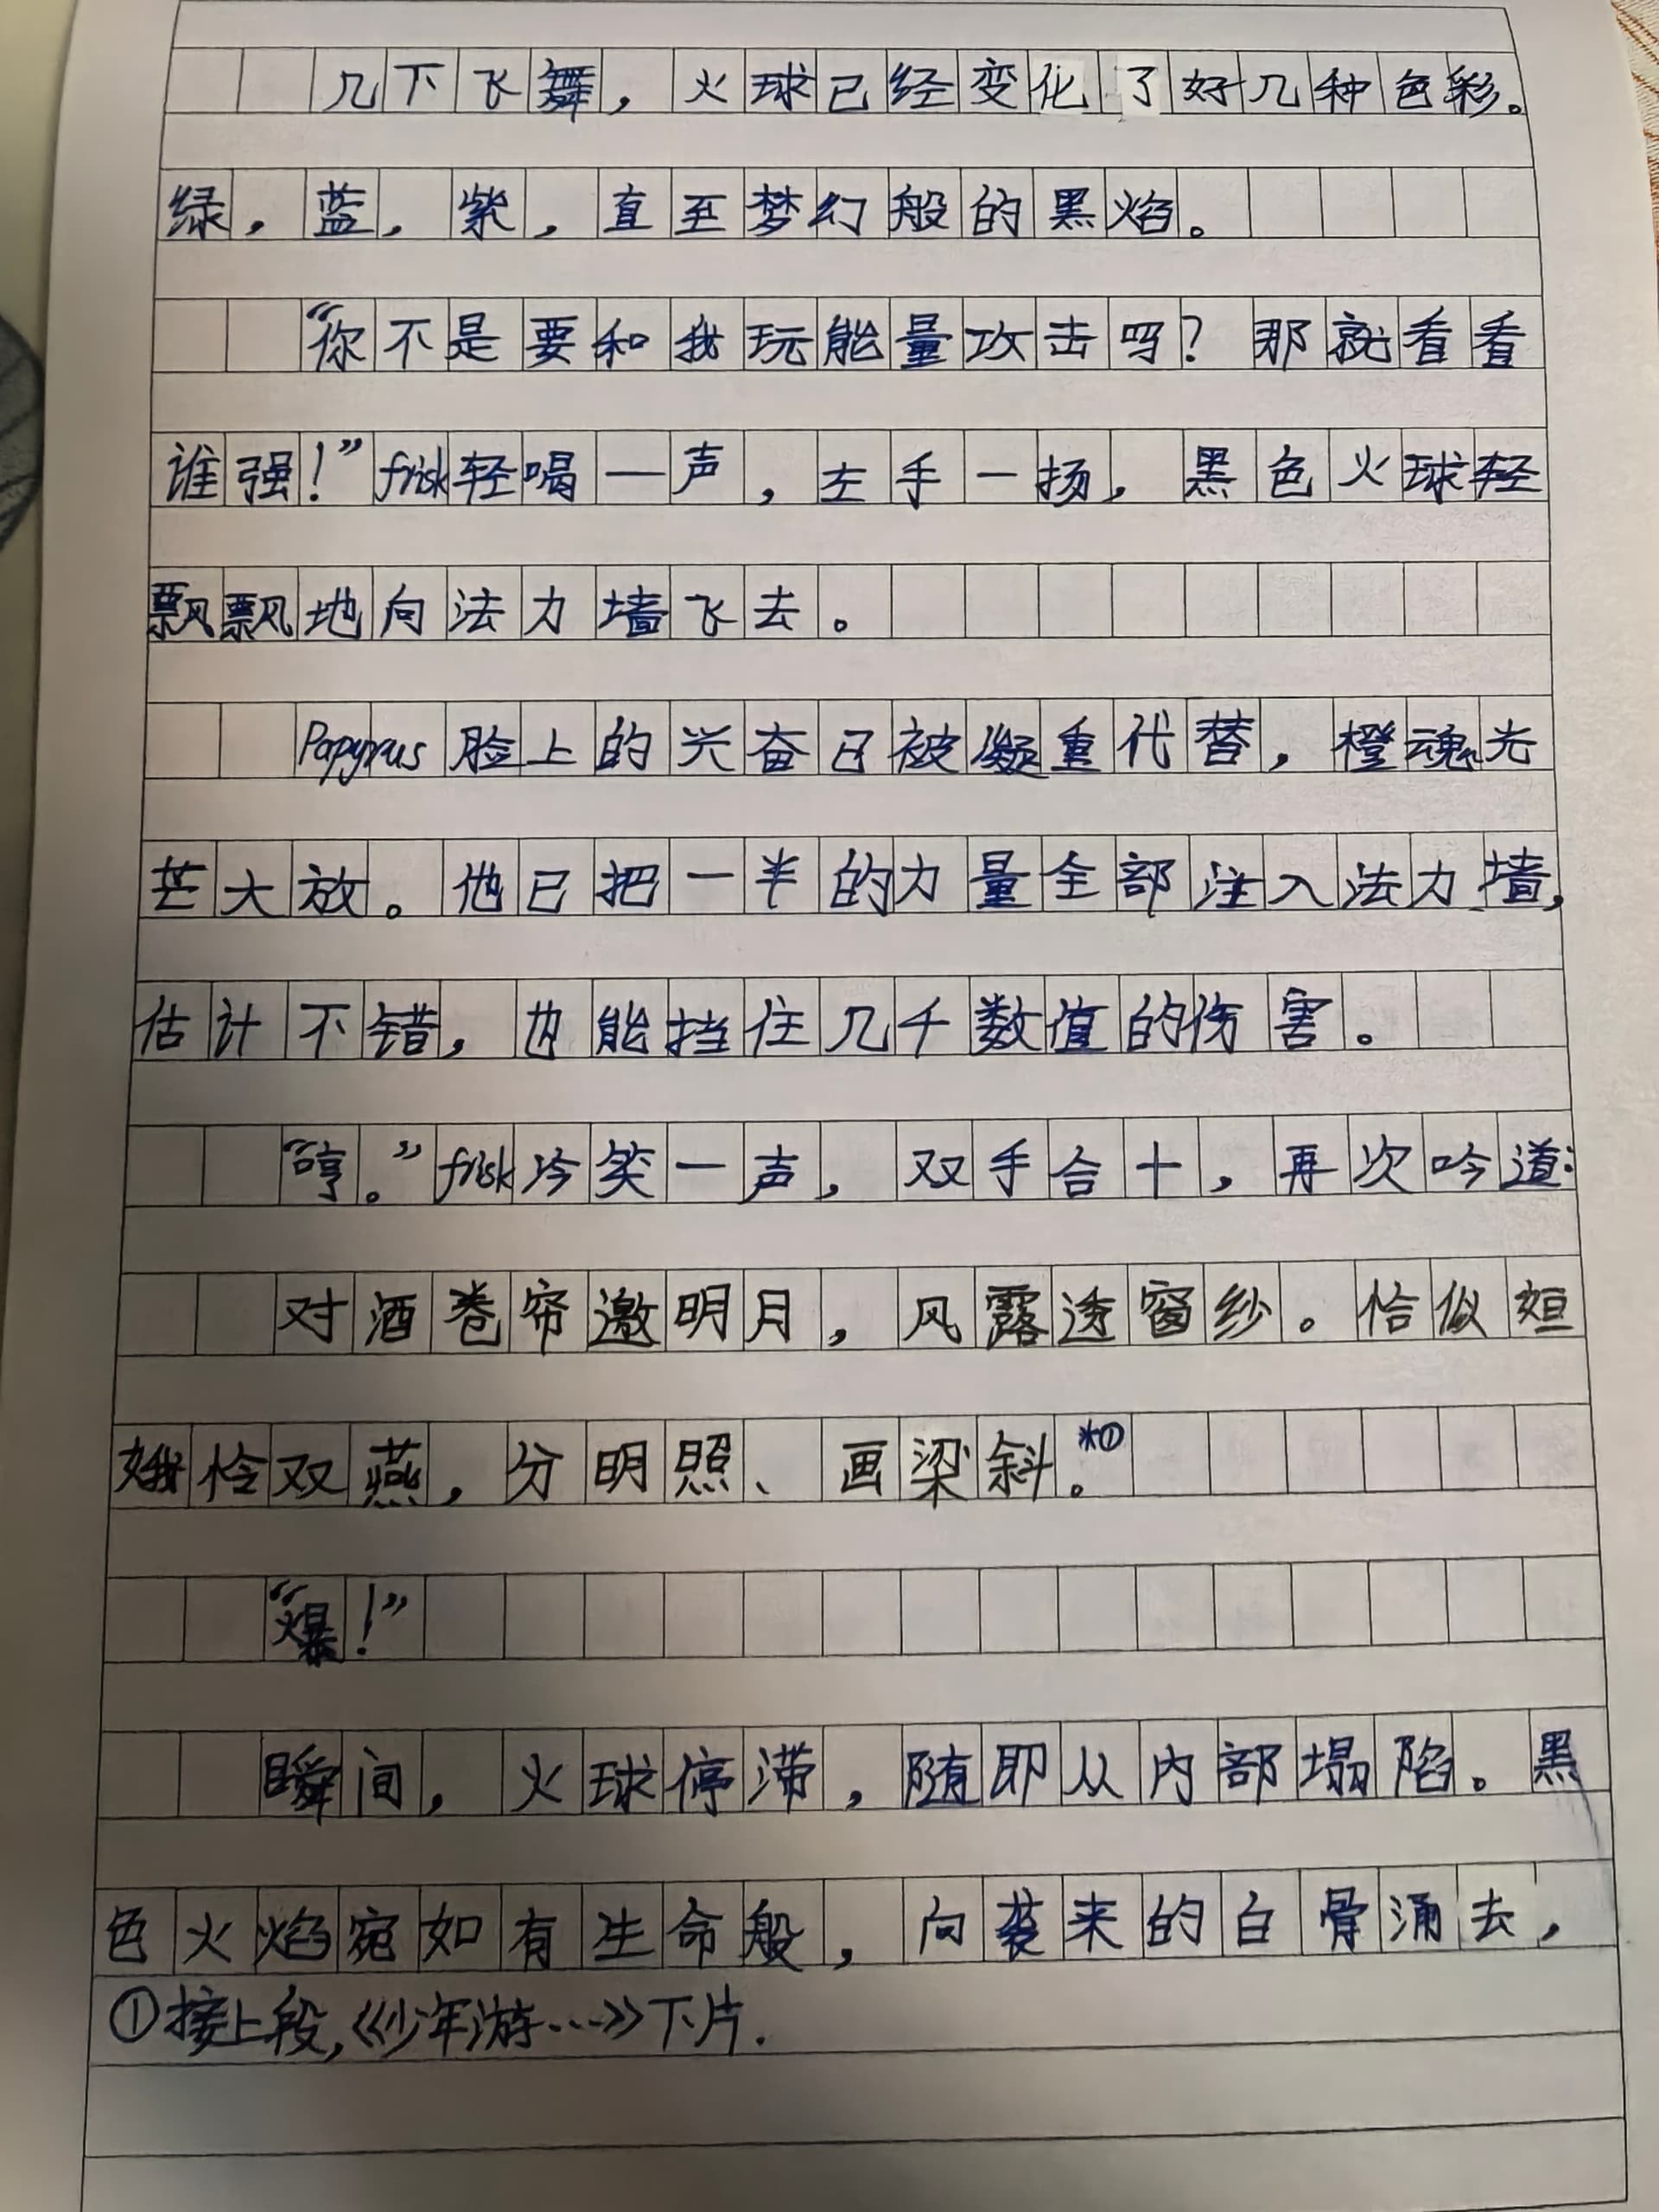 几下飞舞，火球已经变化了好几种色彩。
绿，蓝，紫，直至梦幻般的黑焰。
“你不是要和我玩能量攻击吗？那就看看
谁强！”frisk轻喝一声，左手一扬，黑色火球轻
飘飘地向法力墙飞去。
Papyrus脸上的兴奋已被凝重代替，橙魂光
芒大放。他已把一半的力量全部注入法力墙，
估计不错，也能挡住几千数值的伤害。
“哼。”frisk冷笑一声，双手合十，再次吟道：
对酒卷帘邀明月，风露透窗纱。恰似姮
娥怜双燕，分明照、画梁斜。*①
“爆！”
瞬间，火球停滞，随即从内部塌陷。黑
色火焰宛如有生命般，向袭来的白骨涌去，
①接上段，《少年游…》下片.